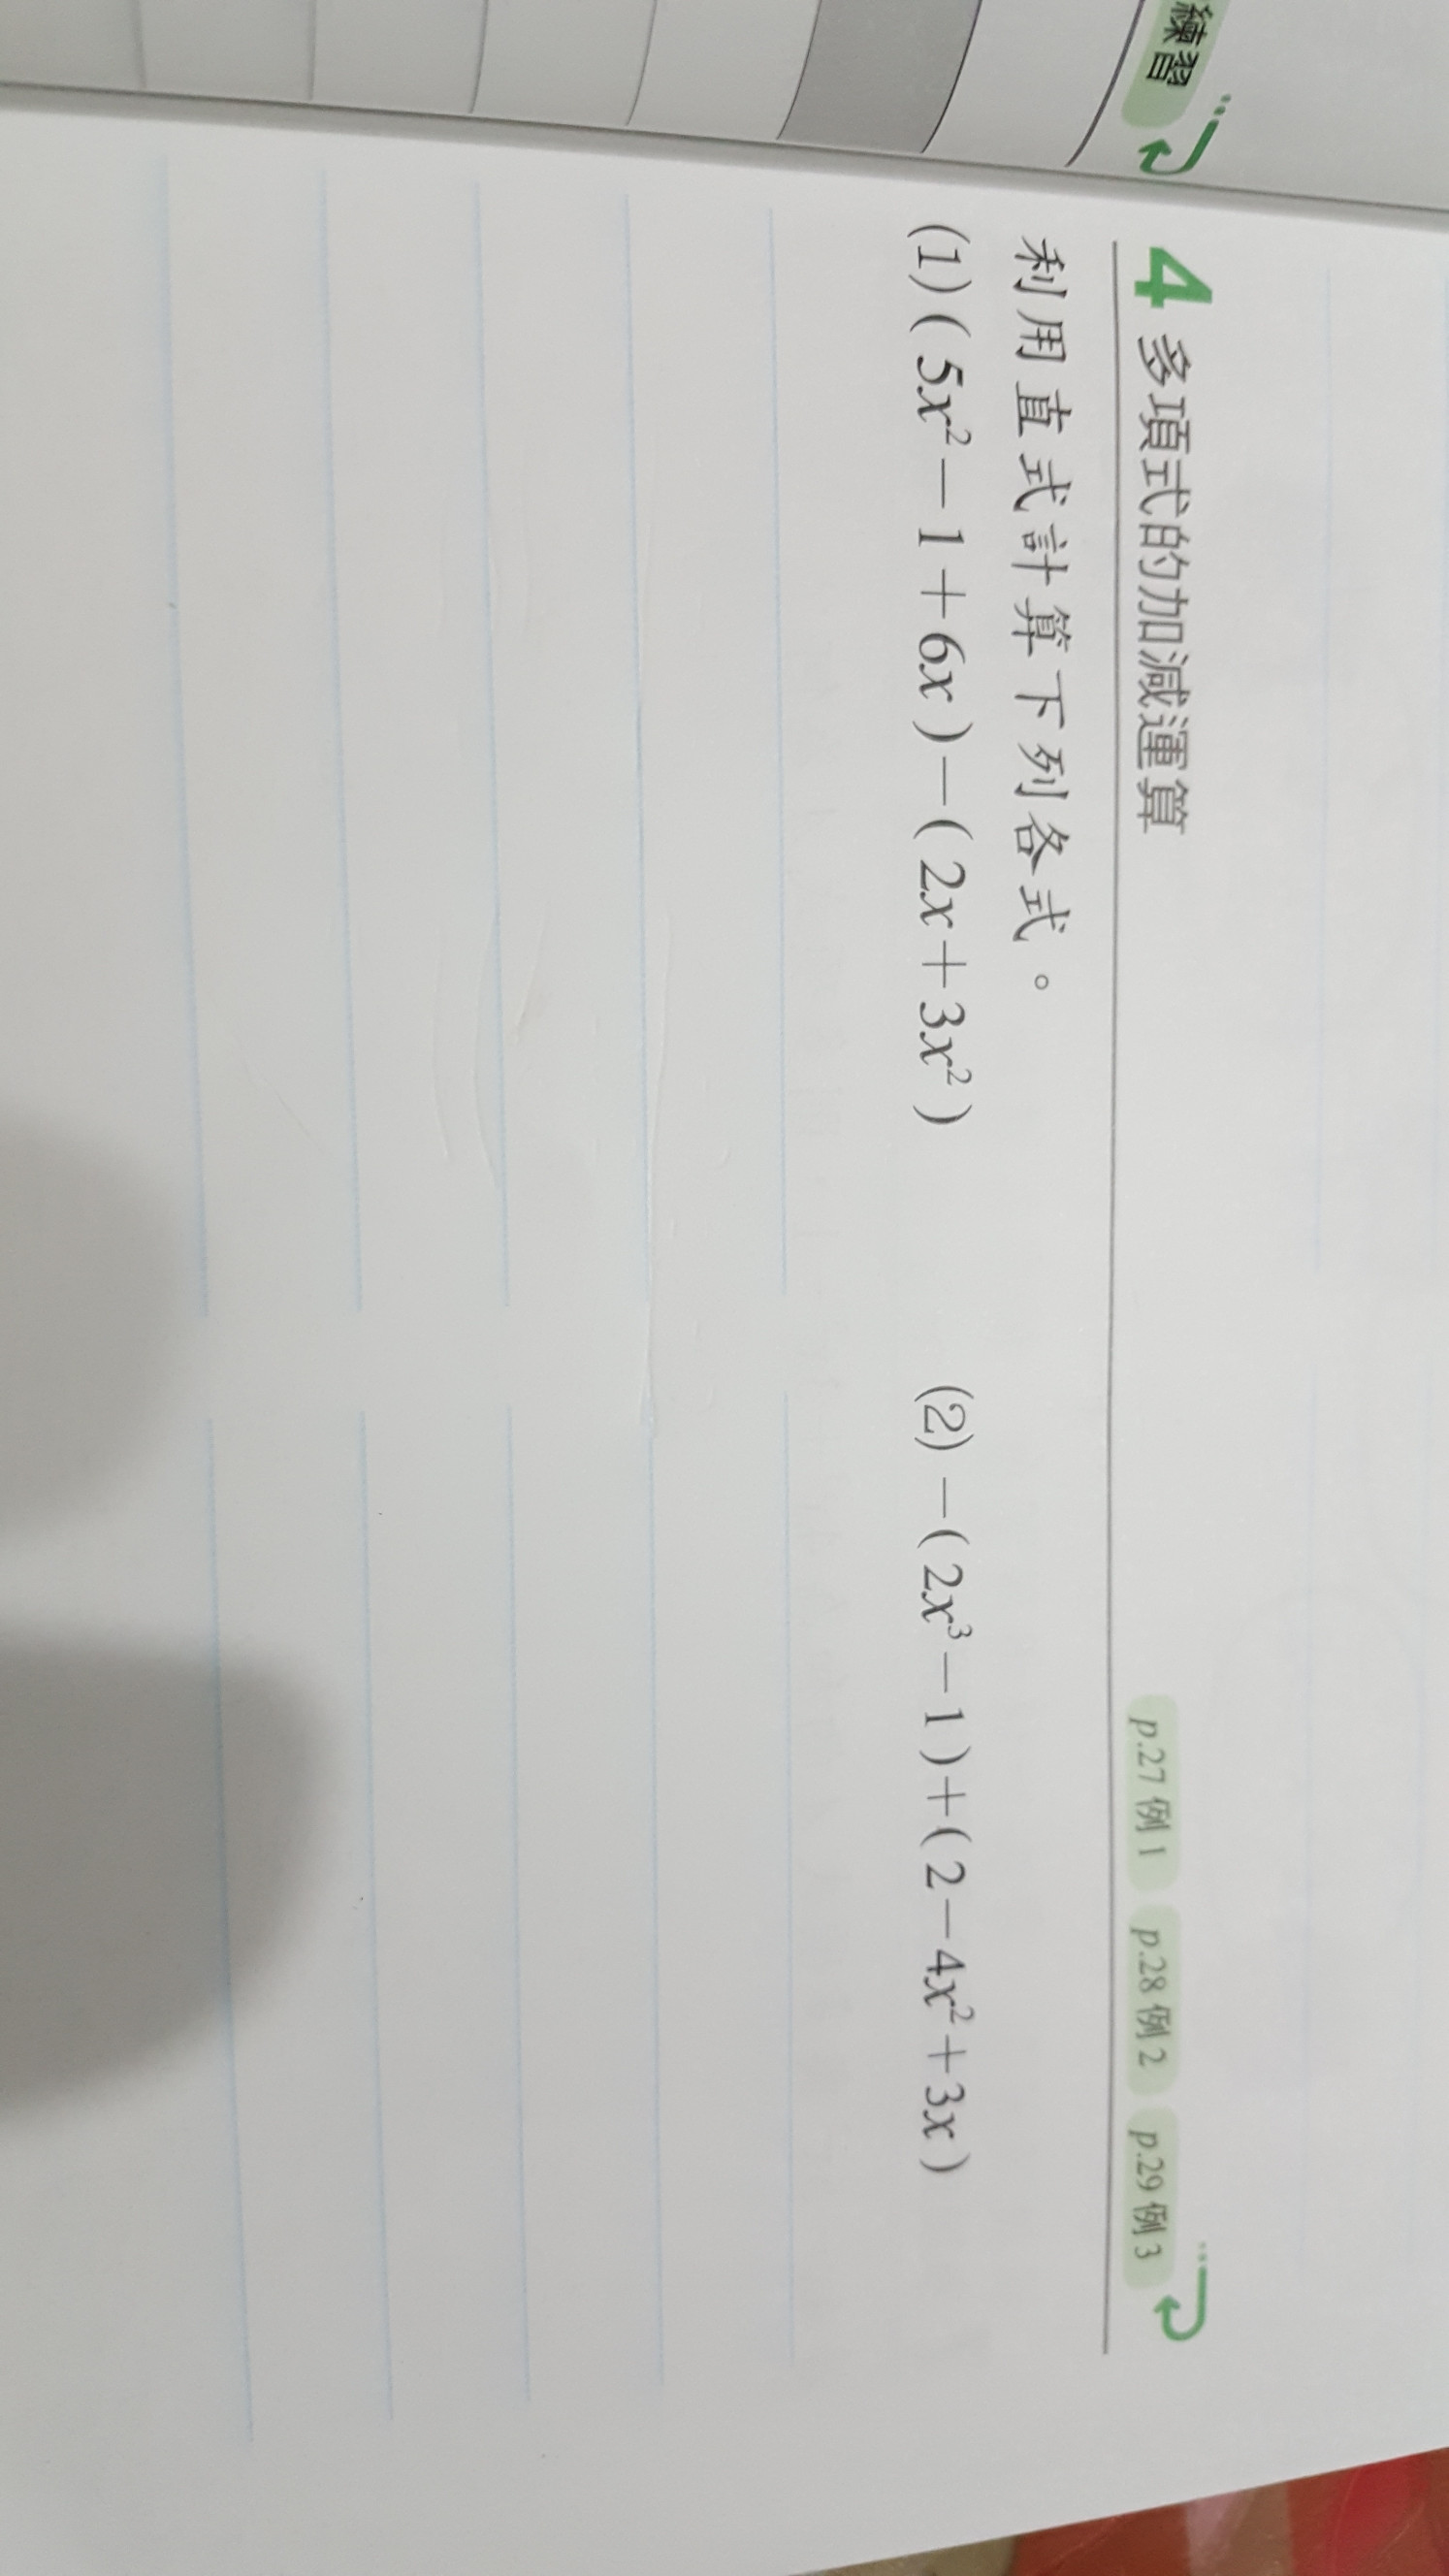 練習
4 多項式的加減運算
p.27 例 1 p.28 例 2 p.29 例 3
利用直式計算下列各式。
(1) ( 5x² − 1 + 6x ) − ( 2x + 3x² )
(2) − ( 2x³ − 1 ) + ( 2 − 4x² + 3x )